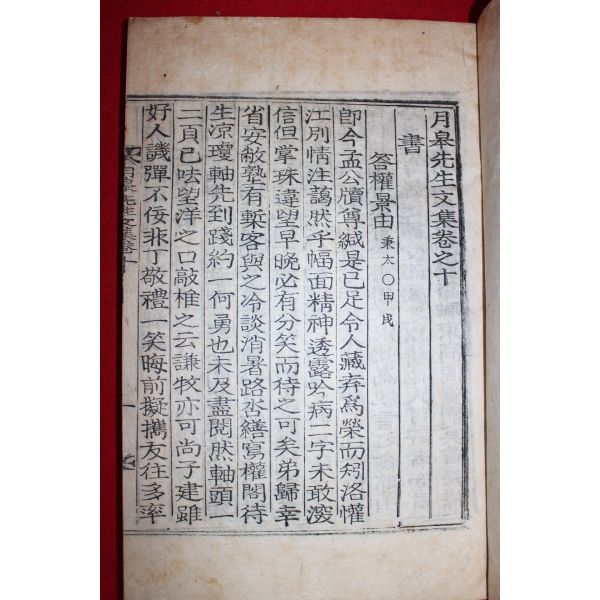 月皐先生文集卷之十
書
答權景由 秉太○甲戌
卽今孟公牘尊緘是已足令人藏弆爲榮而矧洛懽
江別情注藹然乎幅面精神透露吟病二字未敢深
信但掌珠違望早晩必有分笑而待之可矣弟歸幸
省安敝塾有槧客與之冷談消暑路呇繕寫權閣待
生凉瓊軸先到踐約一何勇也未及盡閱然軸頭一
二頁已呿望洋之口敲椎之云謙牧亦可尙子建雖
好人譏彈不佞非丁敬禮一笑晦前擬携友往多率
月皐先生文集卷十
一